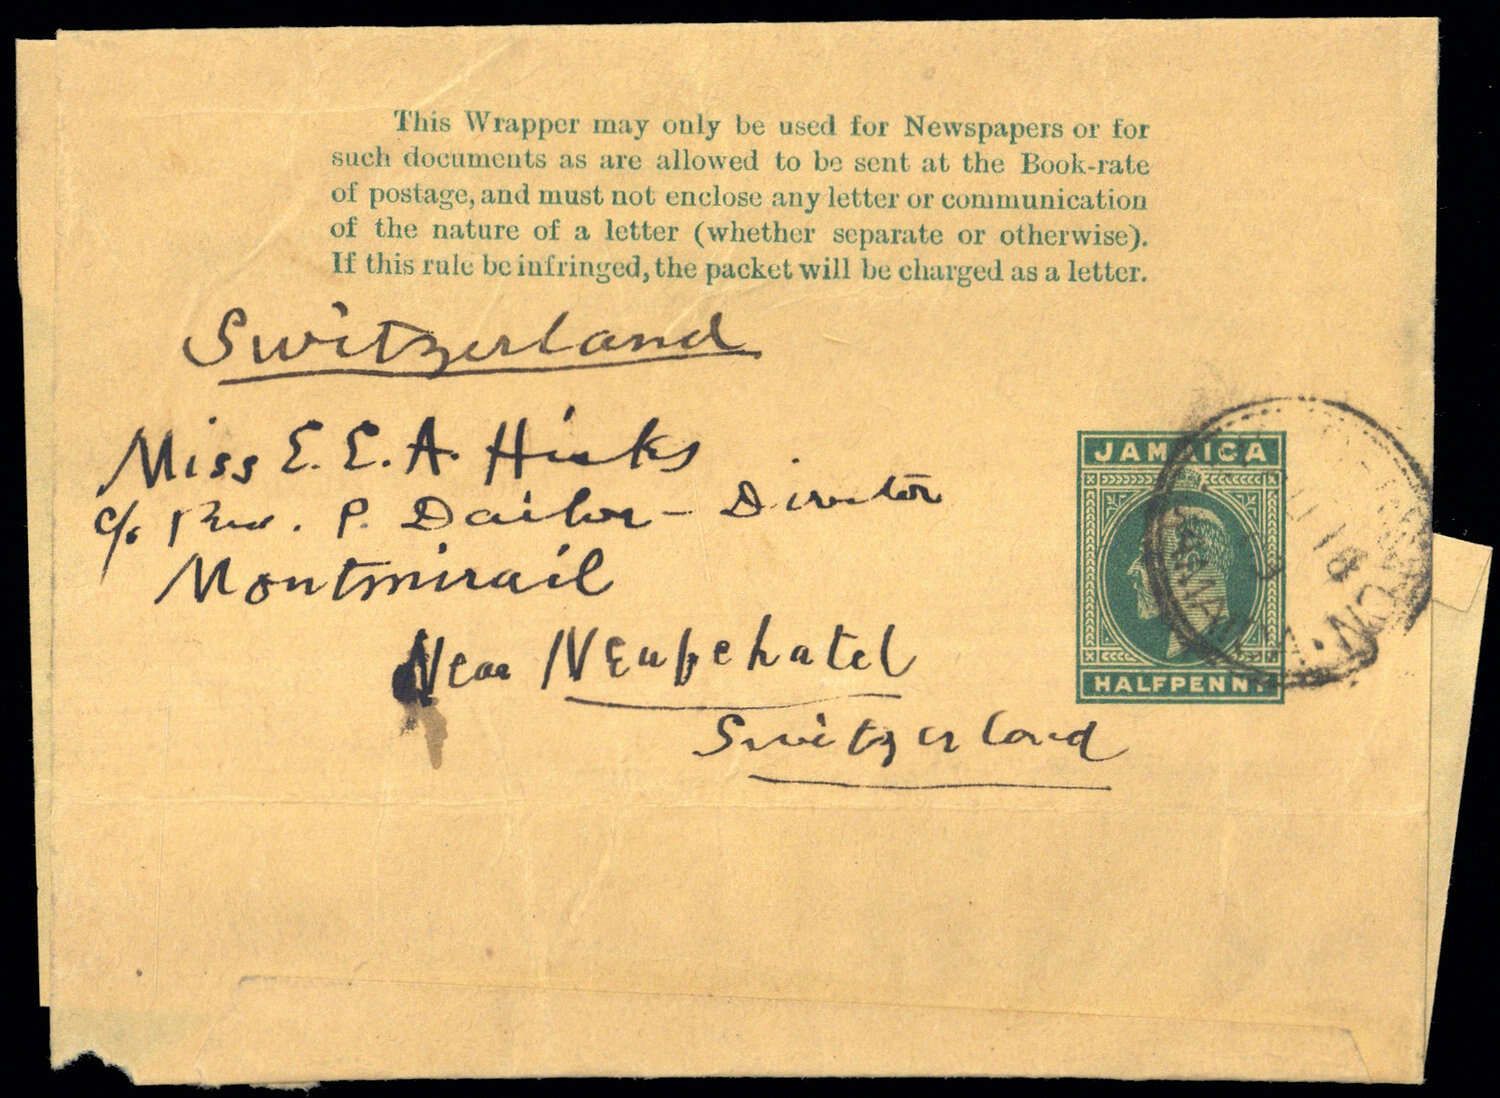 This Wrapper may only be used for Newspapers or for
such documents as are allowed to be sent at the Book-rate
of postage, and must not enclose any letter or communication
of the nature of a letter (whether separate or otherwise).
If this rule be infringed, the packet will be charged as a letter.
Switzerland
Miss E. E. A. Hicks
c/o Rev. P. - Director
Montmirail
Near Neufchatel
Switzerland
JAMAICA
HALFPENNY
JAMAICA